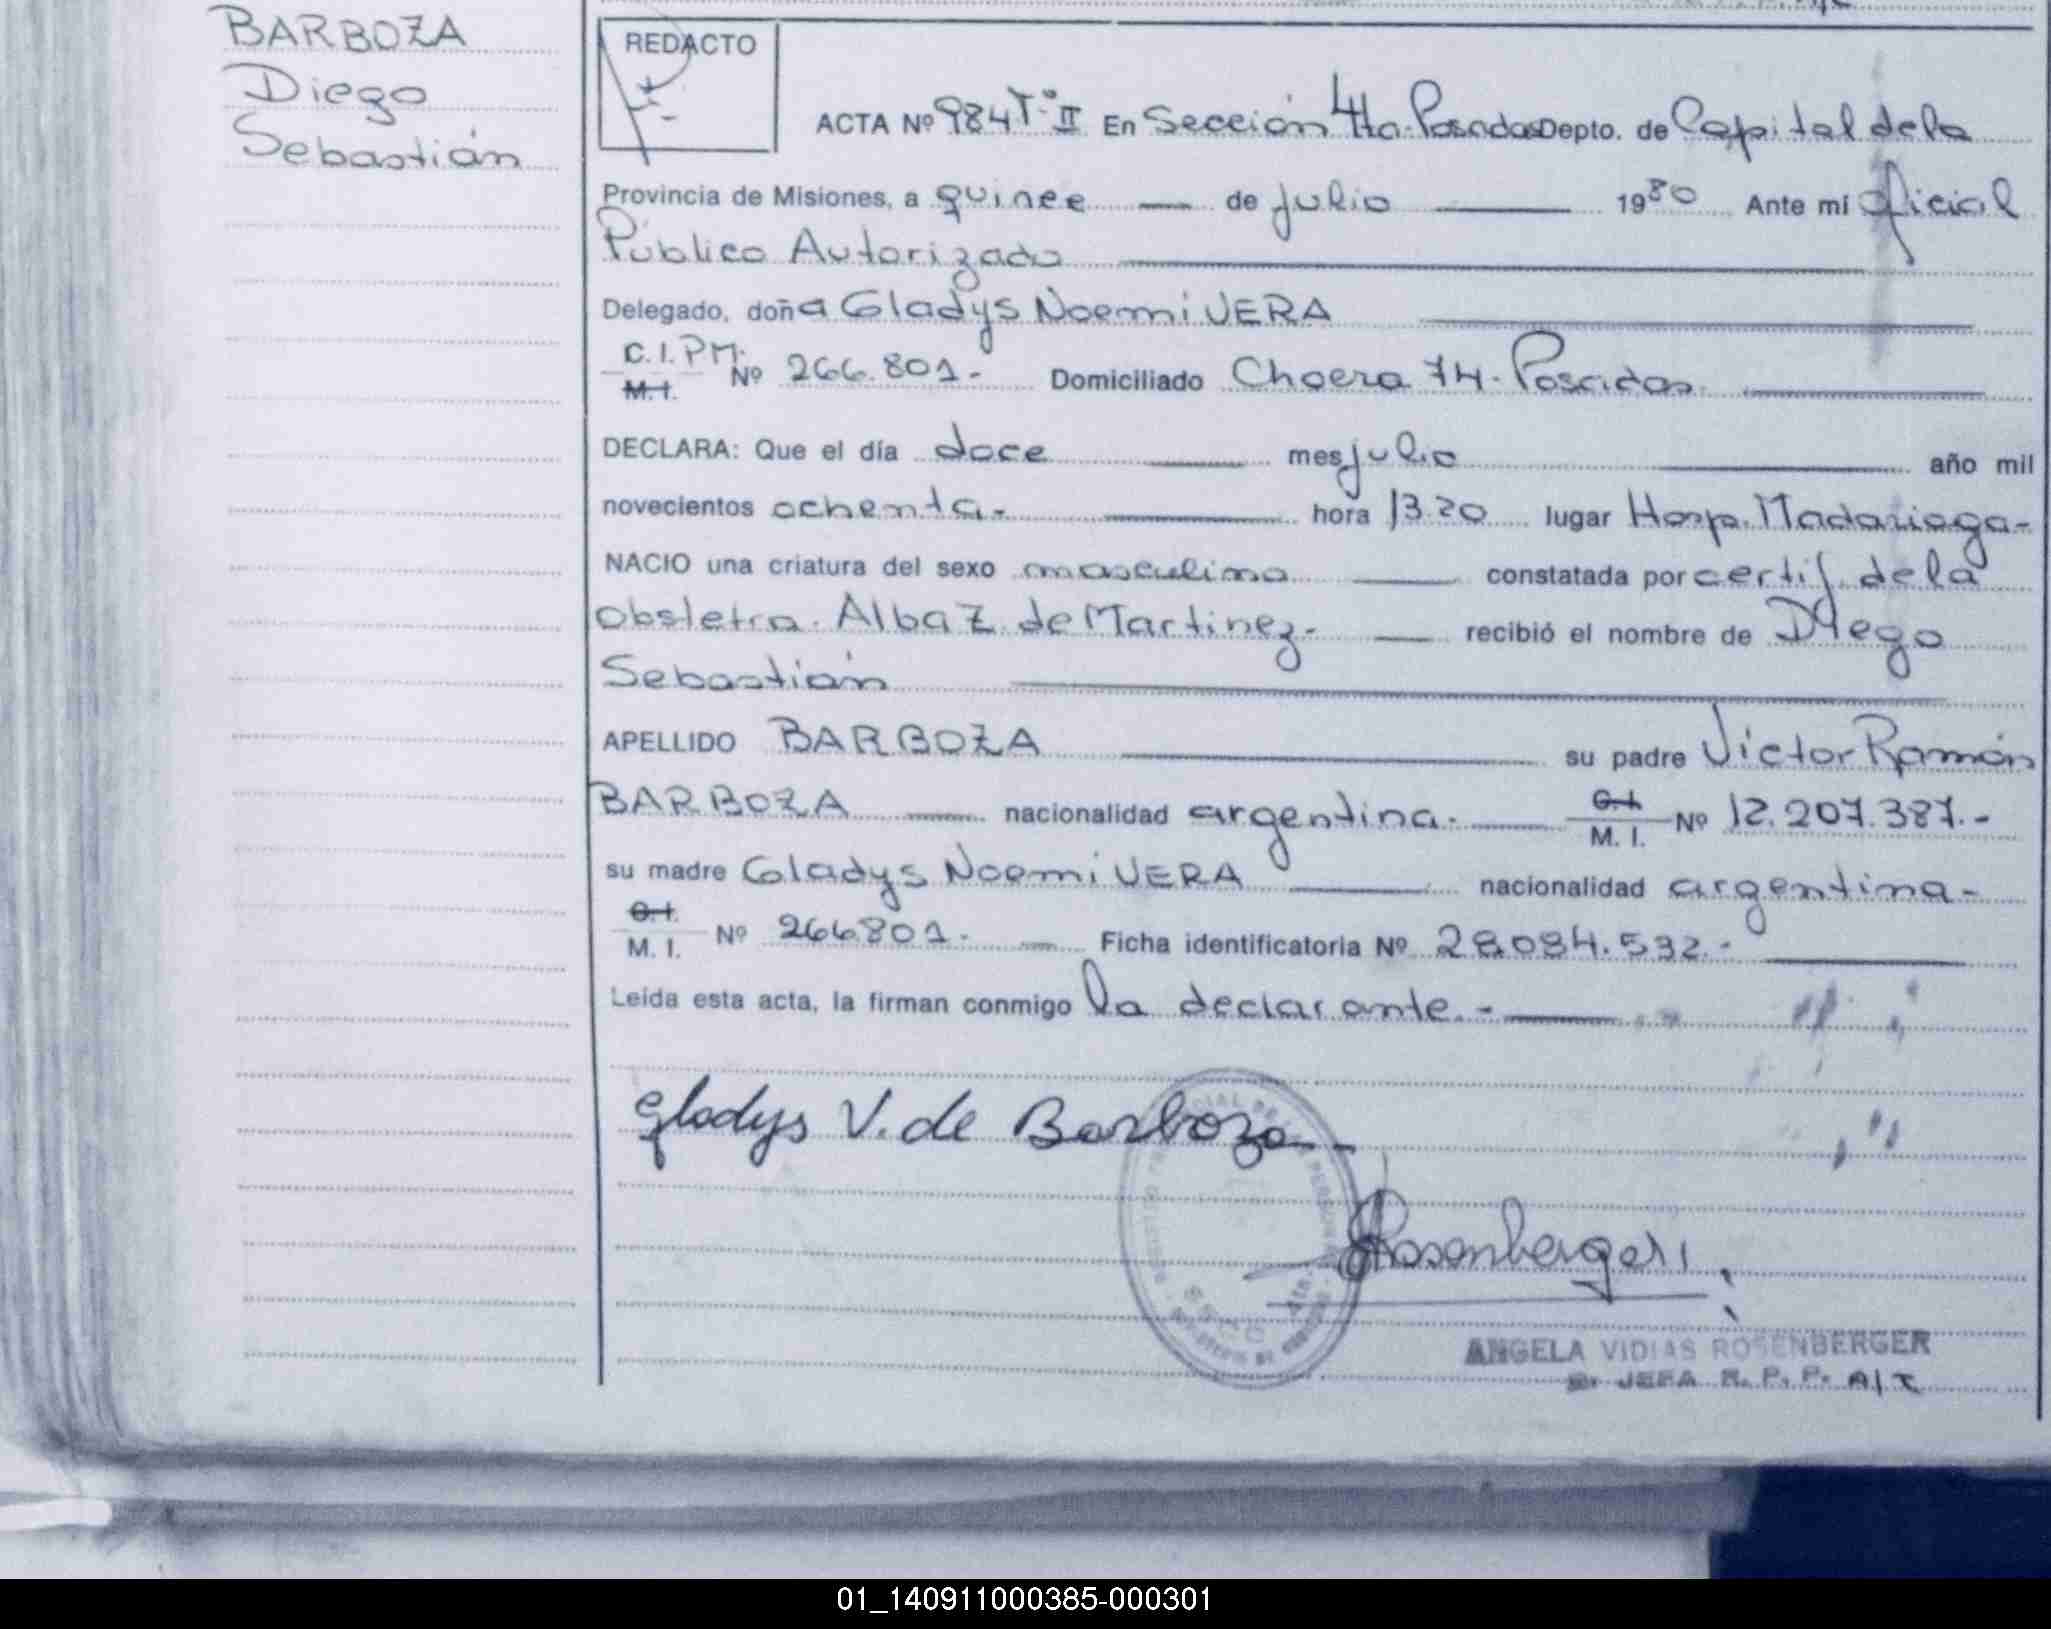 BARBOZA
Diego
Sebastián
REDACTO
ACTA Nº 984 Tº II En Sección 4ta. Posadas Depto. de Capital de la
Provincia de Misiones, a quince de julio 1980 Ante mí Oficial
Público Autorizado
Delegado, doña Gladys Noemi VERA
C.I.PM.
M.I. Nº 266.801.- Domiciliado 74. Posadas.
DECLARA: Que el día doce mes julio año mil
novecientos ochenta.- hora 13.20 lugar Hosp. Madariaga-
NACIO una criatura del sexo masculino constatada por certif. de la
obstetra. Alba Z. de Martinez.- recibió el nombre de Diego
Sebastián
APELLIDO BARBOZA su padre Victor Ramón
BARBOZA nacionalidad argentina. C.I. M.I. Nº 12.207.387.-
su madre Gladys Noemi VERA nacionalidad argentina-
C.I. M.I. Nº 266801. Ficha identificatoria Nº 28.084.532.-
Leída esta acta, la firman conmigo la declarante.-
Gladys V. de Barboza
Rosenberger
ANGELA VIDIAS ROSENBERGER
JEFA R. P. P. A/C
01_140911000385-000301